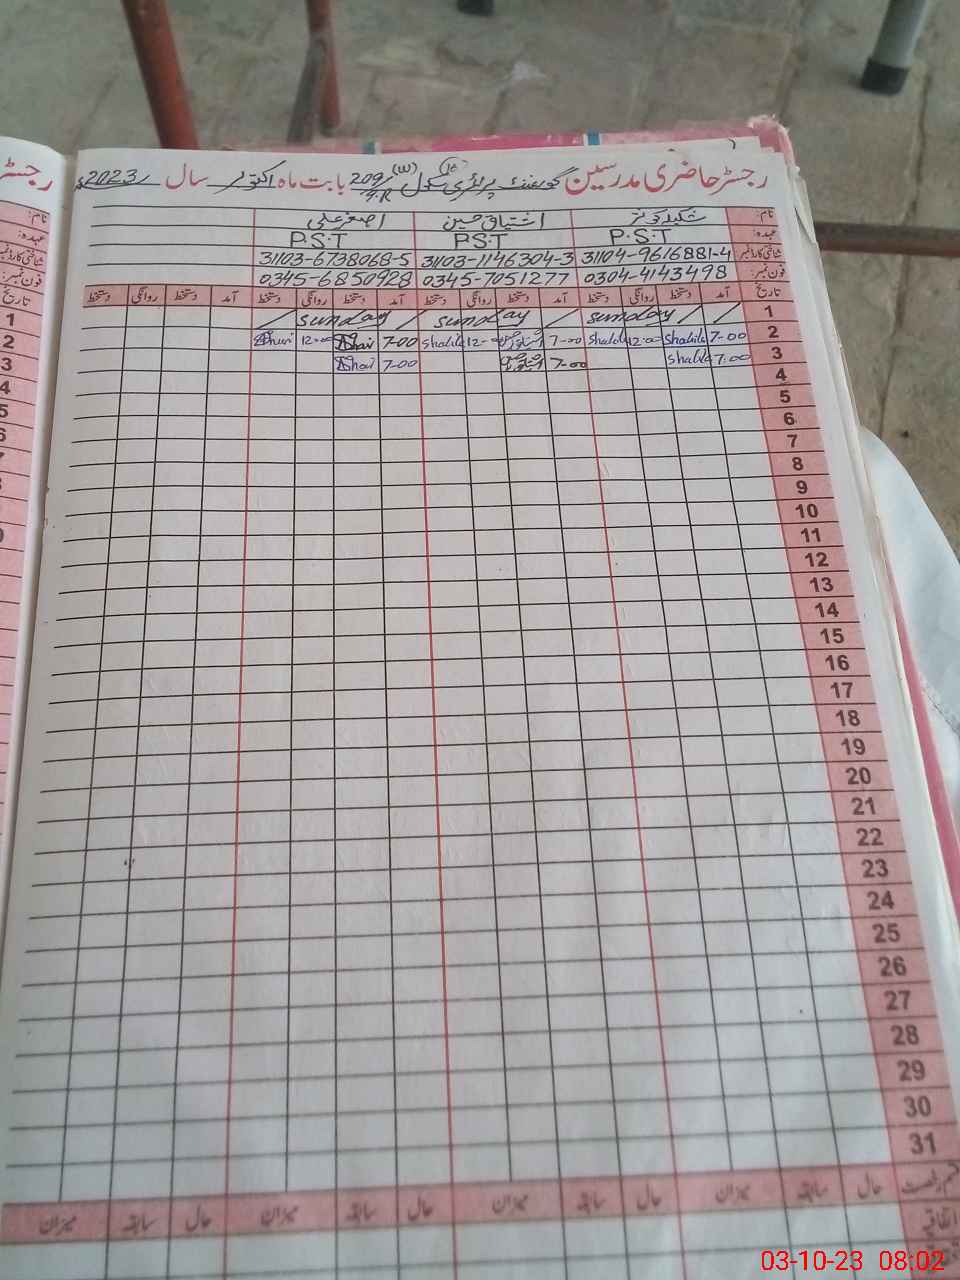 رجسٹر حاضری مدرسین گورنمنٹ پرائمری سکول (W) 209/7.R بابت ماہ اکتوبر سال 2023ء
نام: شکیلہ کوثر اشتیاق حسین اصغر علی
عہدہ: P.S.T P.S.T P.S.T
شناختی کارڈ نمبر 31104-9616881-4 31103-1146304-3 31103-6738068-5
فون نمبر: 0304-4143498 0345-7051277 0345-6850928
تاریخ آمد دستخط روانگی دستخط آمد دستخط روانگی دستخط آمد دستخط روانگی دستخط آمد دستخط روانگی دستخط
1 / / sunday / sunday / sunday /
2 7-00 12:00 7-00 12-00 7-00 12-00
3 7:00 7-00 7-00
4
5
6
7
8
9
10
11
12
13
14
15
16
17
18
19
20
21
22
23
24
25
26
27
28
29
30
31
قسم رخصت حال سابقہ میزان حال سابقہ میزان حال سابقہ میزان حال سابقہ میزان
اتفاقیہ
رجسٹر
نام:
عہدہ:
شناختی کارڈ نمبر
فون نمبر:
تاریخ
1
2
3
4
5
6
03-10-23 08:02